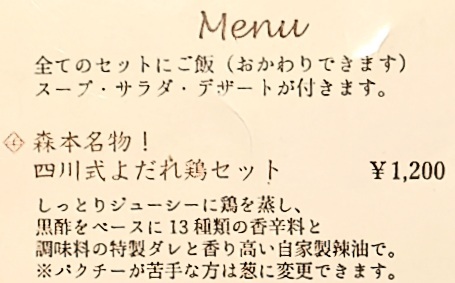 Menu
全てのセットにご飯（おかわりできます）
スープ・サラダ・デザートが付きます。
森本名物！
四川式よだれ鶏セット ￥1,200
しっとりジューシーに鶏を蒸し、
黒酢をベースに13種類の香辛料と
調味料の特製ダレと香り高い自家製辣油で。
※パクチーが苦手な方は葱に変更できます。